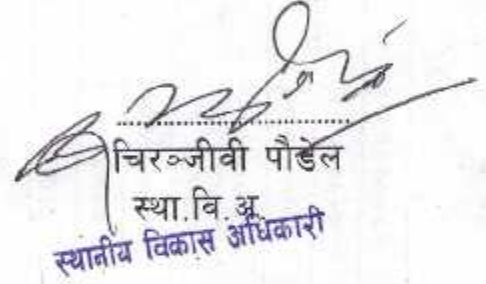 चिरञ्जीवी पौडेल
स्था.वि.अ.
स्थानीय विकास अधिकारी